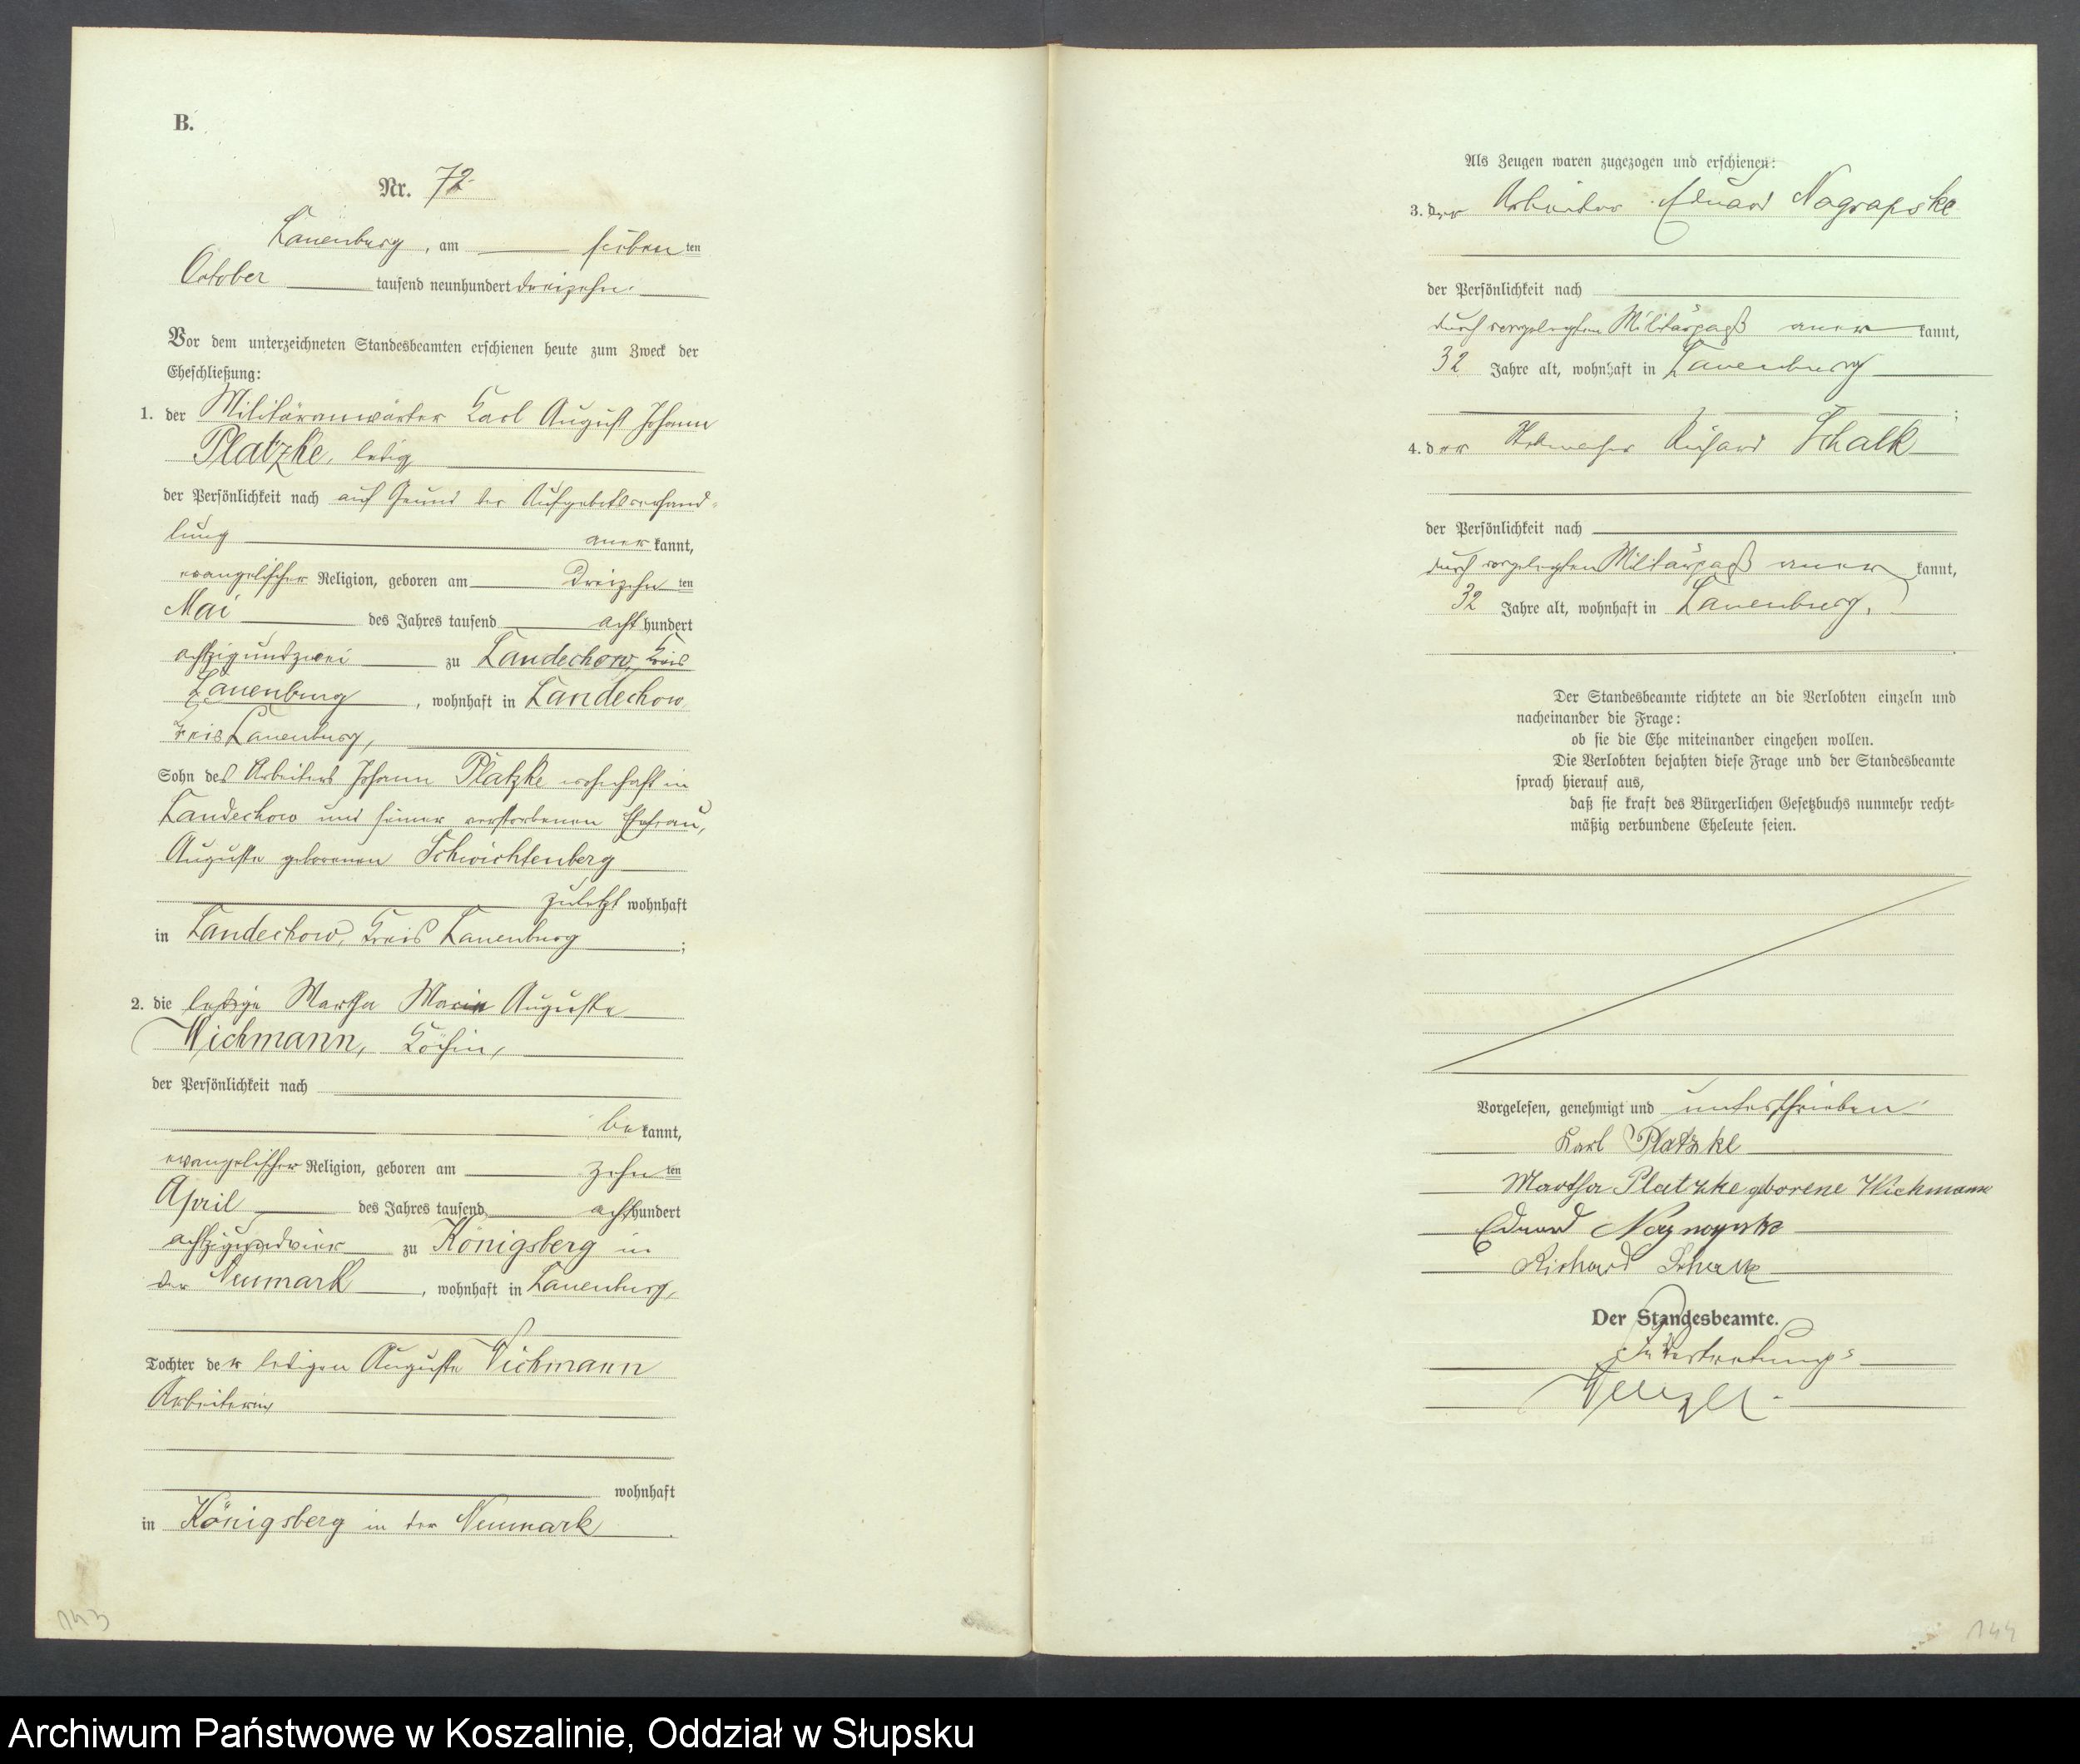 B.
Nr. 72
Lauenburg, am sieben ten
October tausend neunhundert dreizehn.
Vor dem unterzeichneten Standesbeamten erschienen heute zum Zweck der
Eheschließung:
1. der Militäranwärter Karl August Johann
Platzke, ledig
der Persönlichkeit nach auf Grund der Aufgebotsverhand-
lung aner kannt,
evangelischer Religion, geboren am dreizehn ten
Mai des Jahres tausend acht hundert
achtzigundzwei zu Landechow, Kreis
Lauenburg, wohnhaft in Landechow
Kreis Lauenburg,
Sohn des Arbeiters Johann Platzke wohnhaft in
Landechow und seiner verstorbenen Ehefrau,
Auguste geborenen Schwichtenberg
zuletzt wohnhaft
in Landechow, Kreis Lauenburg;
2. die ledige Martha Marie Auguste
Wichmann, Köchin,
der Persönlichkeit nach
be kannt,
evangelischer Religion, geboren am zehn ten
April des Jahres tausend acht hundert
achtzigundvier zu Königsberg in
der Neumark, wohnhaft in Lauenburg,
Tochter der ledigen Auguste Wichmann
Arbeiterin
wohnhaft
in Königsberg in der Neumark.
143
Als Zeugen waren zugezogen und erschienen:
3. der Arbeiter Eduard
der Persönlichkeit nach
durch vorgelegten Militärpaß aner kannt,
32 Jahre alt, wohnhaft in Lauenburg
;
4. der Richard Schalk
der Persönlichkeit nach
durch vorgelegten Militärpaß aner kannt,
32 Jahre alt, wohnhaft in Lauenburg.
Der Standesbeamte richtete an die Verlobten einzeln und
nacheinander die Frage:
ob sie die Ehe miteinander eingehen wollen.
Die Verlobten bejahten diese Frage und der Standesbeamte
sprach hierauf aus,
daß sie kraft des Bürgerlichen Gesetzbuchs nunmehr recht-
mäßig verbundene Eheleute seien.
Vorgelesen, genehmigt und unterschrieben
Karl Platzke
Martha Platzke geborene Wichmann
Eduard
Richard Schalk
Der Standesbeamte.
In Vertretung
144
Archiwum Państwowe w Koszalinie, Oddział w Słupsku